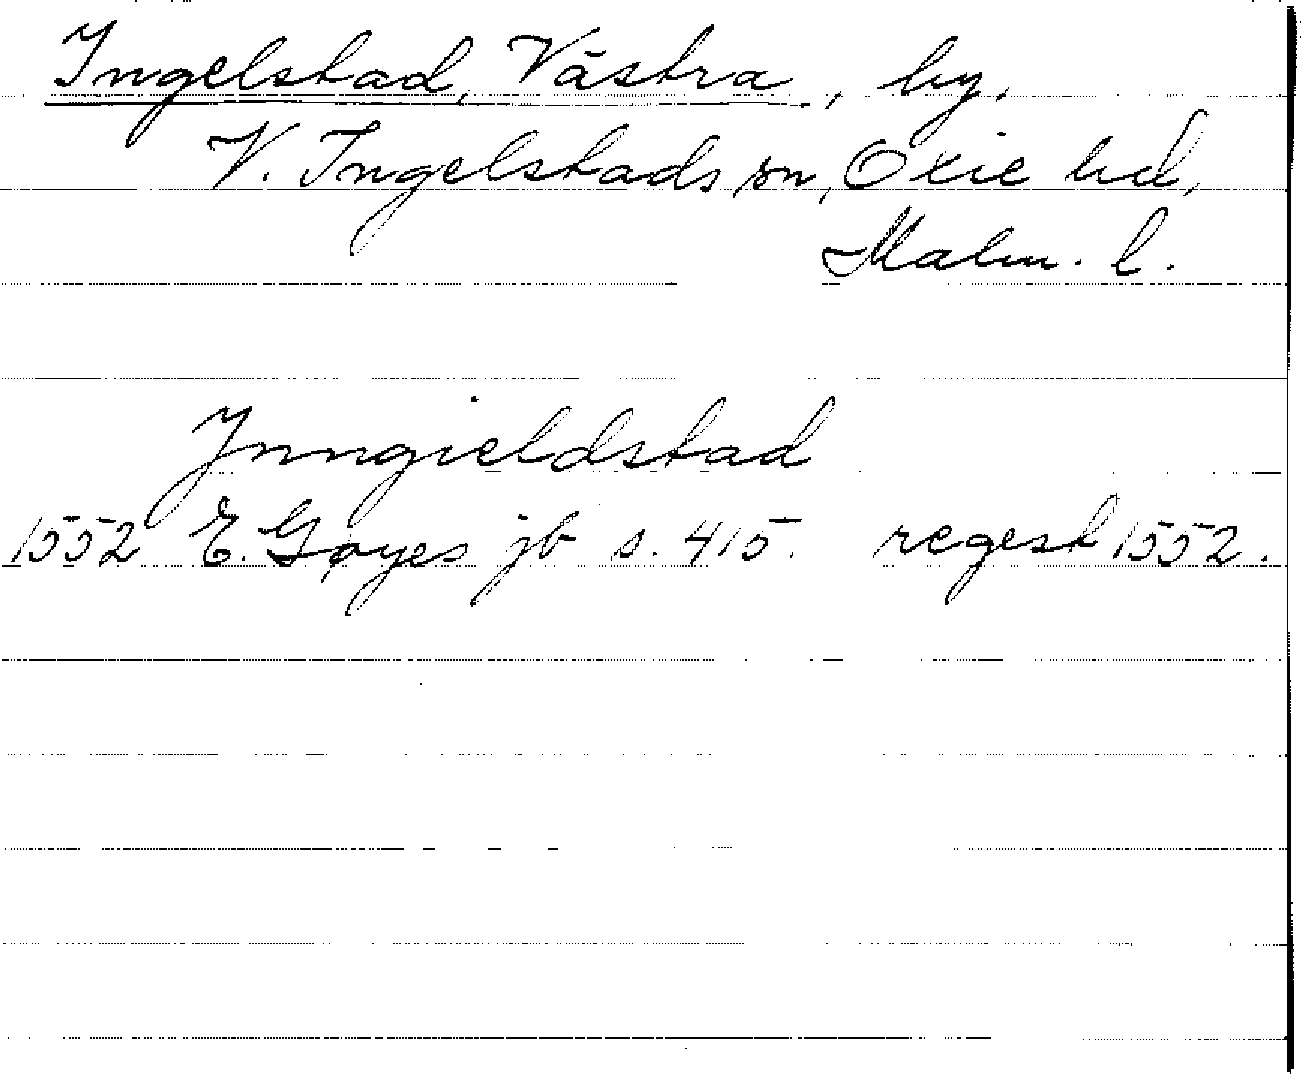 Ingelstad, Västra, by.
V. Ingelstads sn, Oxie hd,
Malm. l.
Jnngieldstad
1552 E. Gøyes jb s. 415. regest 1552.